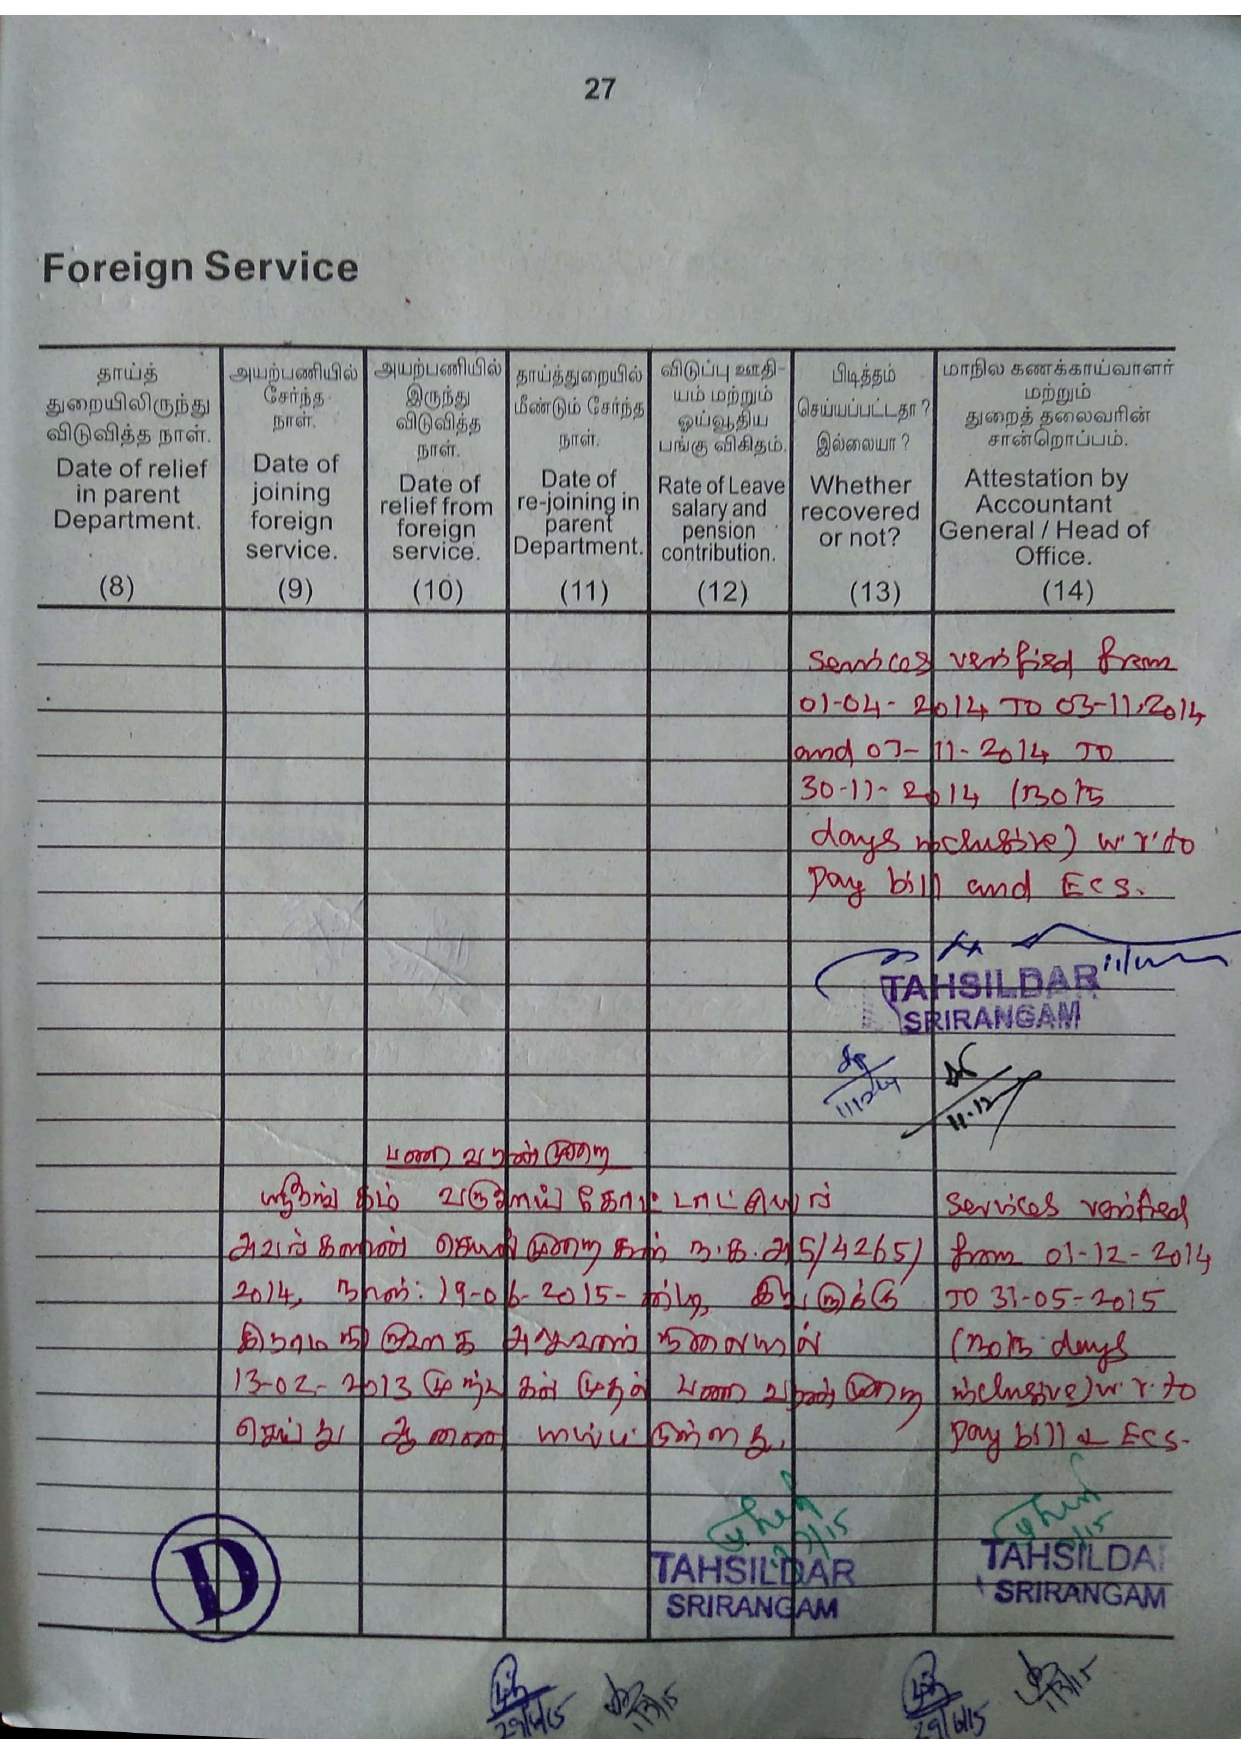 27
Foreign Service
தாய்த்
துறையிலிருந்து
விடுவித்த நாள்.
Date of relief
in parent
Department.
(8)
அயற்பணியில்
சேர்ந்த
நாள்.
Date of
joining
foreign
service.
(9)
அயற்பணியில்
இருந்து
விடுவித்த
நாள்.
Date of
relief from
foreign
service.
(10)
தாய்த்துறையில்
மீண்டும் சேர்ந்த
நாள்.
Date of
re-joining in
parent
Department.
(11)
விடுப்பு ஊதி-
யம் மற்றும்
ஓய்வூதிய
பங்கு விகிதம்.
Rate of Leave
salary and
pension
contribution.
(12)
பிடித்தம்
செய்யப்பட்டதா?
இல்லையா?
Whether
recovered
or not?
(13)
மாநில கணக்காய்வாளர்
மற்றும்
துறைத் தலைவரின்
சான்றொப்பம்.
Attestation by
Accountant
General / Head of
Office.
(14)
Services verified from
01-04-2014 TO 03-11-2014
and 07-11-2014 TO
30-11-2014 (Both
days inclusive) w.r.to
Pay bill and ECS.
TAHSILDAR
SRIRANGAM
11-12
பணி வரன்முறை
ஸ்ரீரங்கம் வருவாய் கோட்டாட்சியர்
அவர்களின் செயல்முறைகள் ந.க.அ5/4265/
2014, நாள்: 19-06-2015-ன்படி, இவருக்கு
கிராம நிர்வாக அலுவலர் நிலையில்
13-02-2013 முற்பகல் முதல் பணி வரன்முறை
செய்து ஆணையிடப்பட்டுள்ளது.
Services verified
from 01-12-2014
TO 31-05-2015
(Both days
inclusive) w.r.to
Pay bill & ECS.
D
TAHSILDAR
SRIRANGAM
TAHSILDA
SRIRANGAM
29/6/15
29/6/15